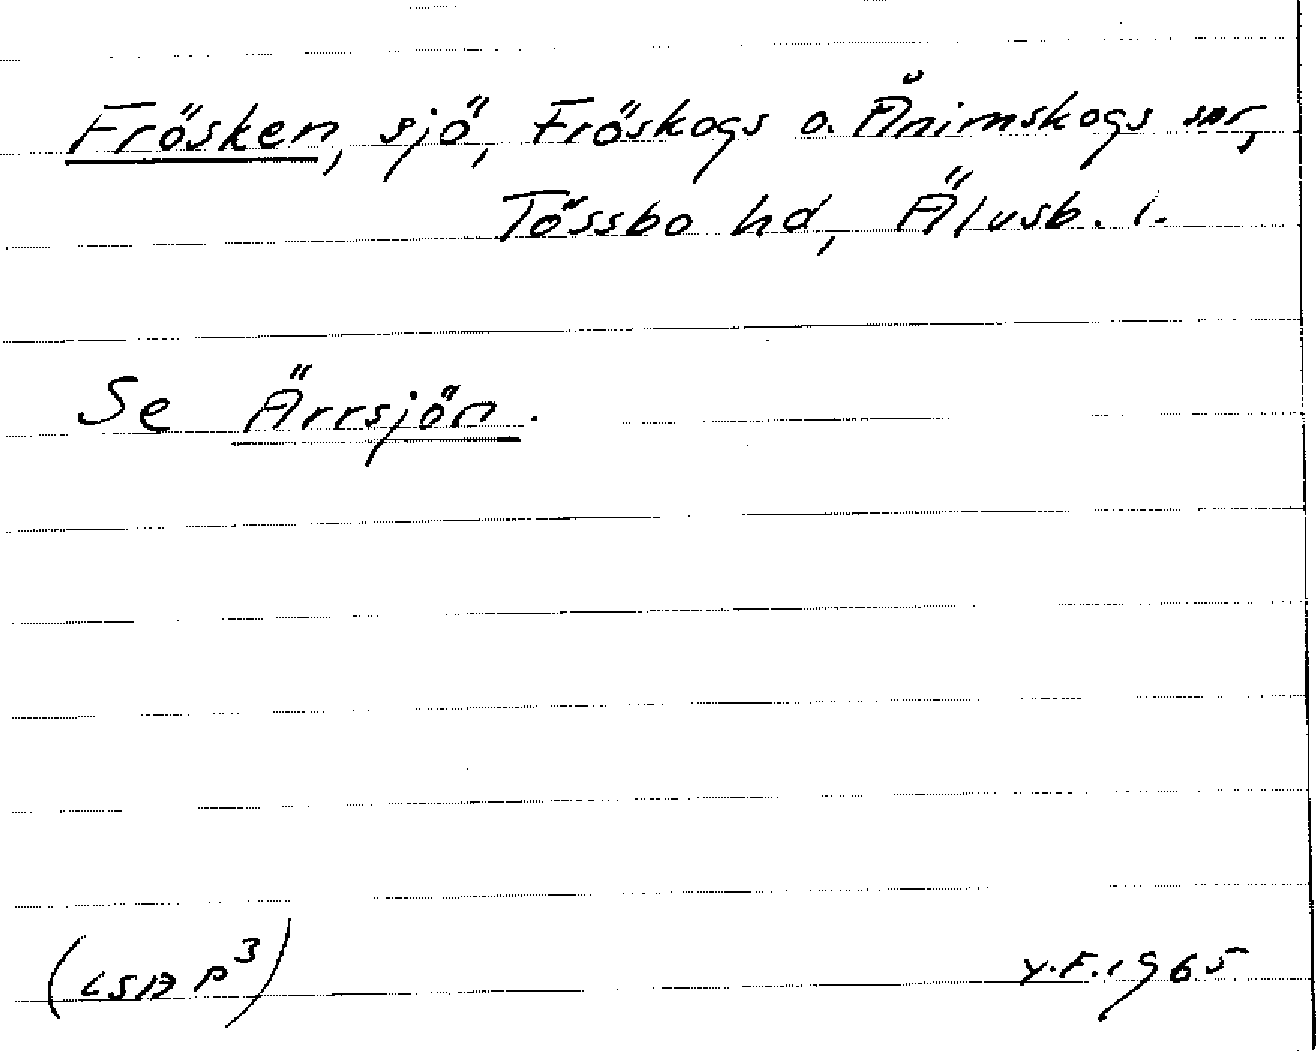 Frösken, sjö, Fröskogs o. Ånimskogs snr,
Tössbo hd, Älvsb. l.
Se Ärrsjön.
(LSA P³)
Y.F. 1965